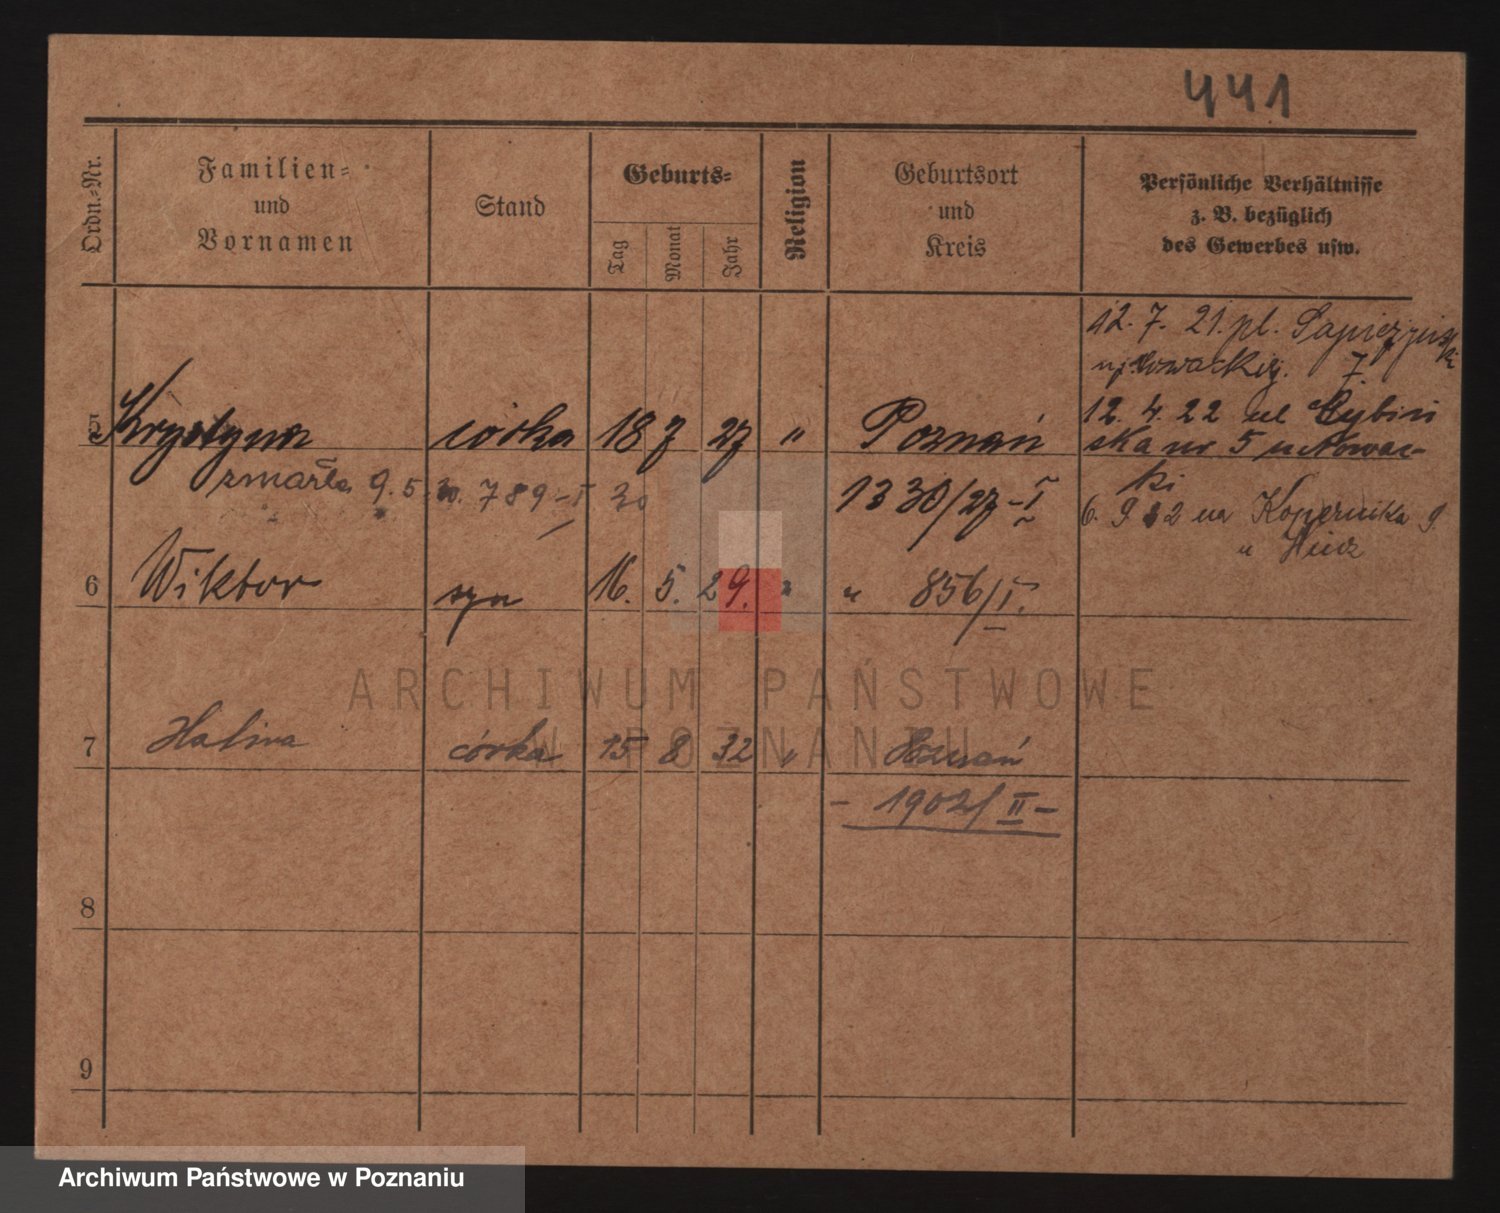 441
Ordn.=Nr.
Familien=
und
Vornamen
Stand
Geburts=
Tag
Monat
Jahr
Religion
Geburtsort
und
Kreis
Persönliche Verhältnisse
z. B. bezüglich
des Gewerbes usw.
12. 7. 21. pl. Sapieżyński
7.
5 Krystyna córka 18 7 27 " Poznań
12. 4. 22 ul Rybiń
ska nr 5 u Nowac-
ki
zmarła 9. 5. 30. 789-I 30
1330/27-I
6. 9 32 na Kopernika 9.
u
6 Wiktor syn 16. 5. 29. " " 856/I.
ARCHIWUM PAŃSTWOWE
W POZNANIU
7 Halina córka 15 8 32 " Poznań
- 1902/II -
8
9
Archiwum Państwowe w Poznaniu